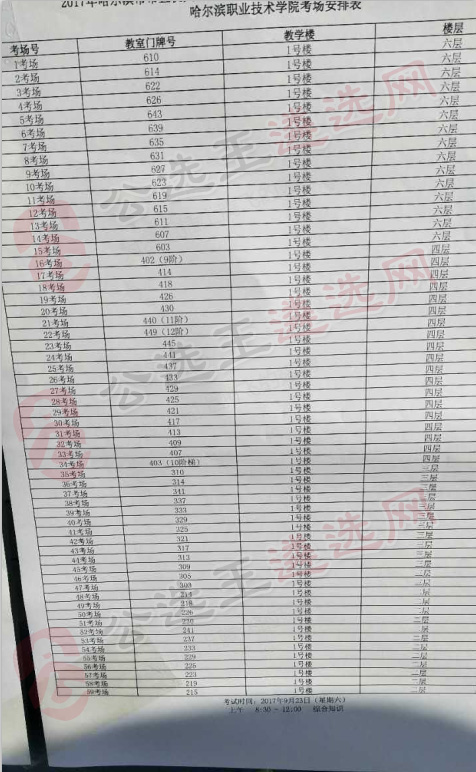 哈尔滨职业技术学院考场安排表
考场号 教室门牌号 教学楼 楼层
1考场 610 1号楼 六层
2考场 614 1号楼 六层
3考场 622 1号楼 六层
4考场 626 1号楼 六层
5考场 643 1号楼 六层
6考场 639 1号楼 六层
7考场 635 1号楼 六层
8考场 631 1号楼 六层
9考场 627 1号楼 六层
10考场 623 1号楼 六层
11考场 619 1号楼 六层
12考场 615 1号楼 六层
13考场 611 1号楼 六层
14考场 607 1号楼 六层
15考场 603 1号楼 六层
16考场 402（9阶） 1号楼 四层
17考场 414 1号楼 四层
18考场 418 1号楼 四层
19考场 426 1号楼 四层
20考场 430 1号楼 四层
21考场 440（11阶） 1号楼 四层
22考场 449（12阶） 1号楼 四层
23考场 445 1号楼 四层
24考场 441 1号楼 四层
25考场 437 1号楼 四层
26考场 433 1号楼 四层
27考场 429 1号楼 四层
28考场 425 1号楼 四层
29考场 421 1号楼 四层
30考场 417 1号楼 四层
31考场 413 1号楼 四层
32考场 409 1号楼 四层
33考场 407 1号楼 四层
34考场 403（10阶梯） 1号楼 四层
35考场 310 1号楼 三层
36考场 314 1号楼 三层
37考场 341 1号楼 三层
38考场 337 1号楼 三层
39考场 333 1号楼 三层
40考场 329 1号楼 三层
41考场 325 1号楼 三层
42考场 321 1号楼 三层
43考场 317 1号楼 三层
44考场 313 1号楼 三层
45考场 309 1号楼 三层
46考场 305 1号楼
47考场 303 1号楼
48考场 214 1号楼
49考场 218 1号楼
50考场 226 1号楼
51考场 1号楼 二层
52考场 241 1号楼 二层
53考场 237 1号楼 二层
54考场 233 1号楼 二层
55考场 229 1号楼 二层
56考场 225 1号楼 二层
57考场 223 1号楼 二层
58考场 219 1号楼 二层
59考场 215 1号楼 二层
考试时间：2017年9月23日（星期六）
上午 8:30－12:00 综合知识
公选王遴选网
公选王遴选网
公选王遴选网